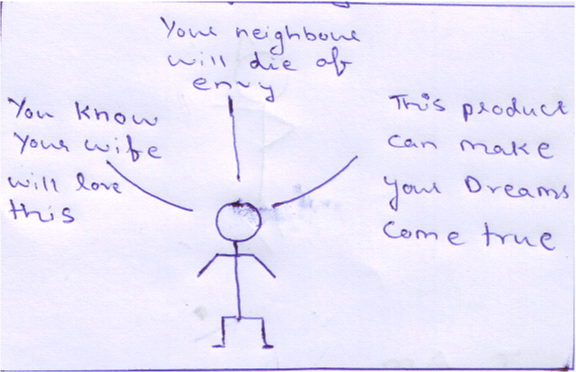 Your neighbour
will die of
envy
You know
your wife
will love
this
This product
can make
your Dreams
come true